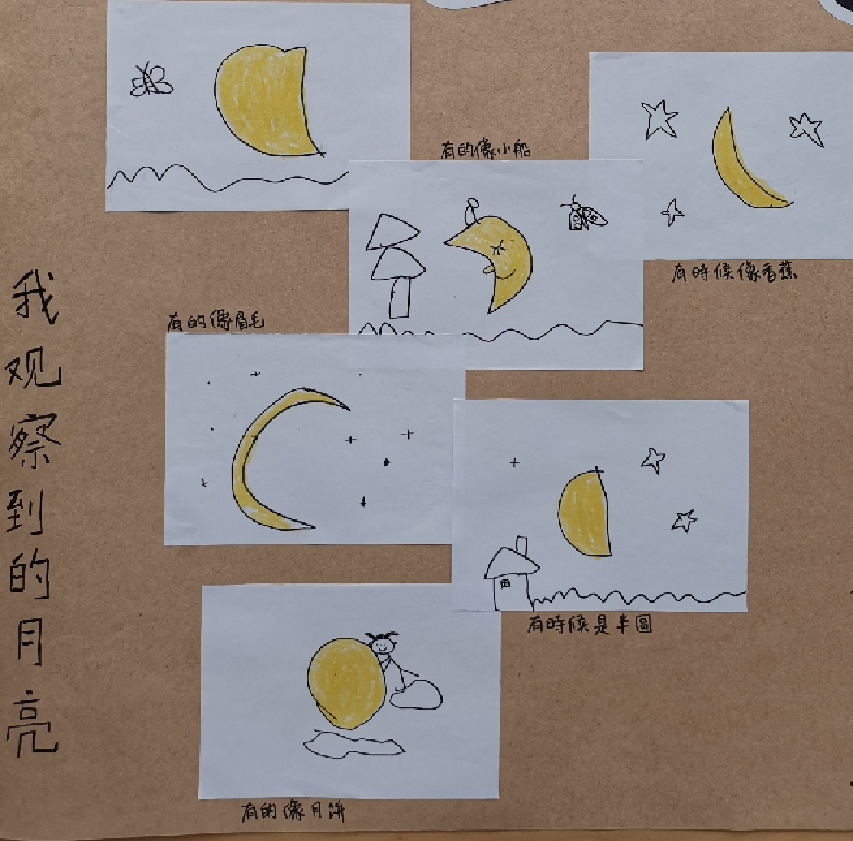 我观察到的月亮
有的像小船
有時候像香蕉
有的像眉毛
有時候是半圓
有的像月餅